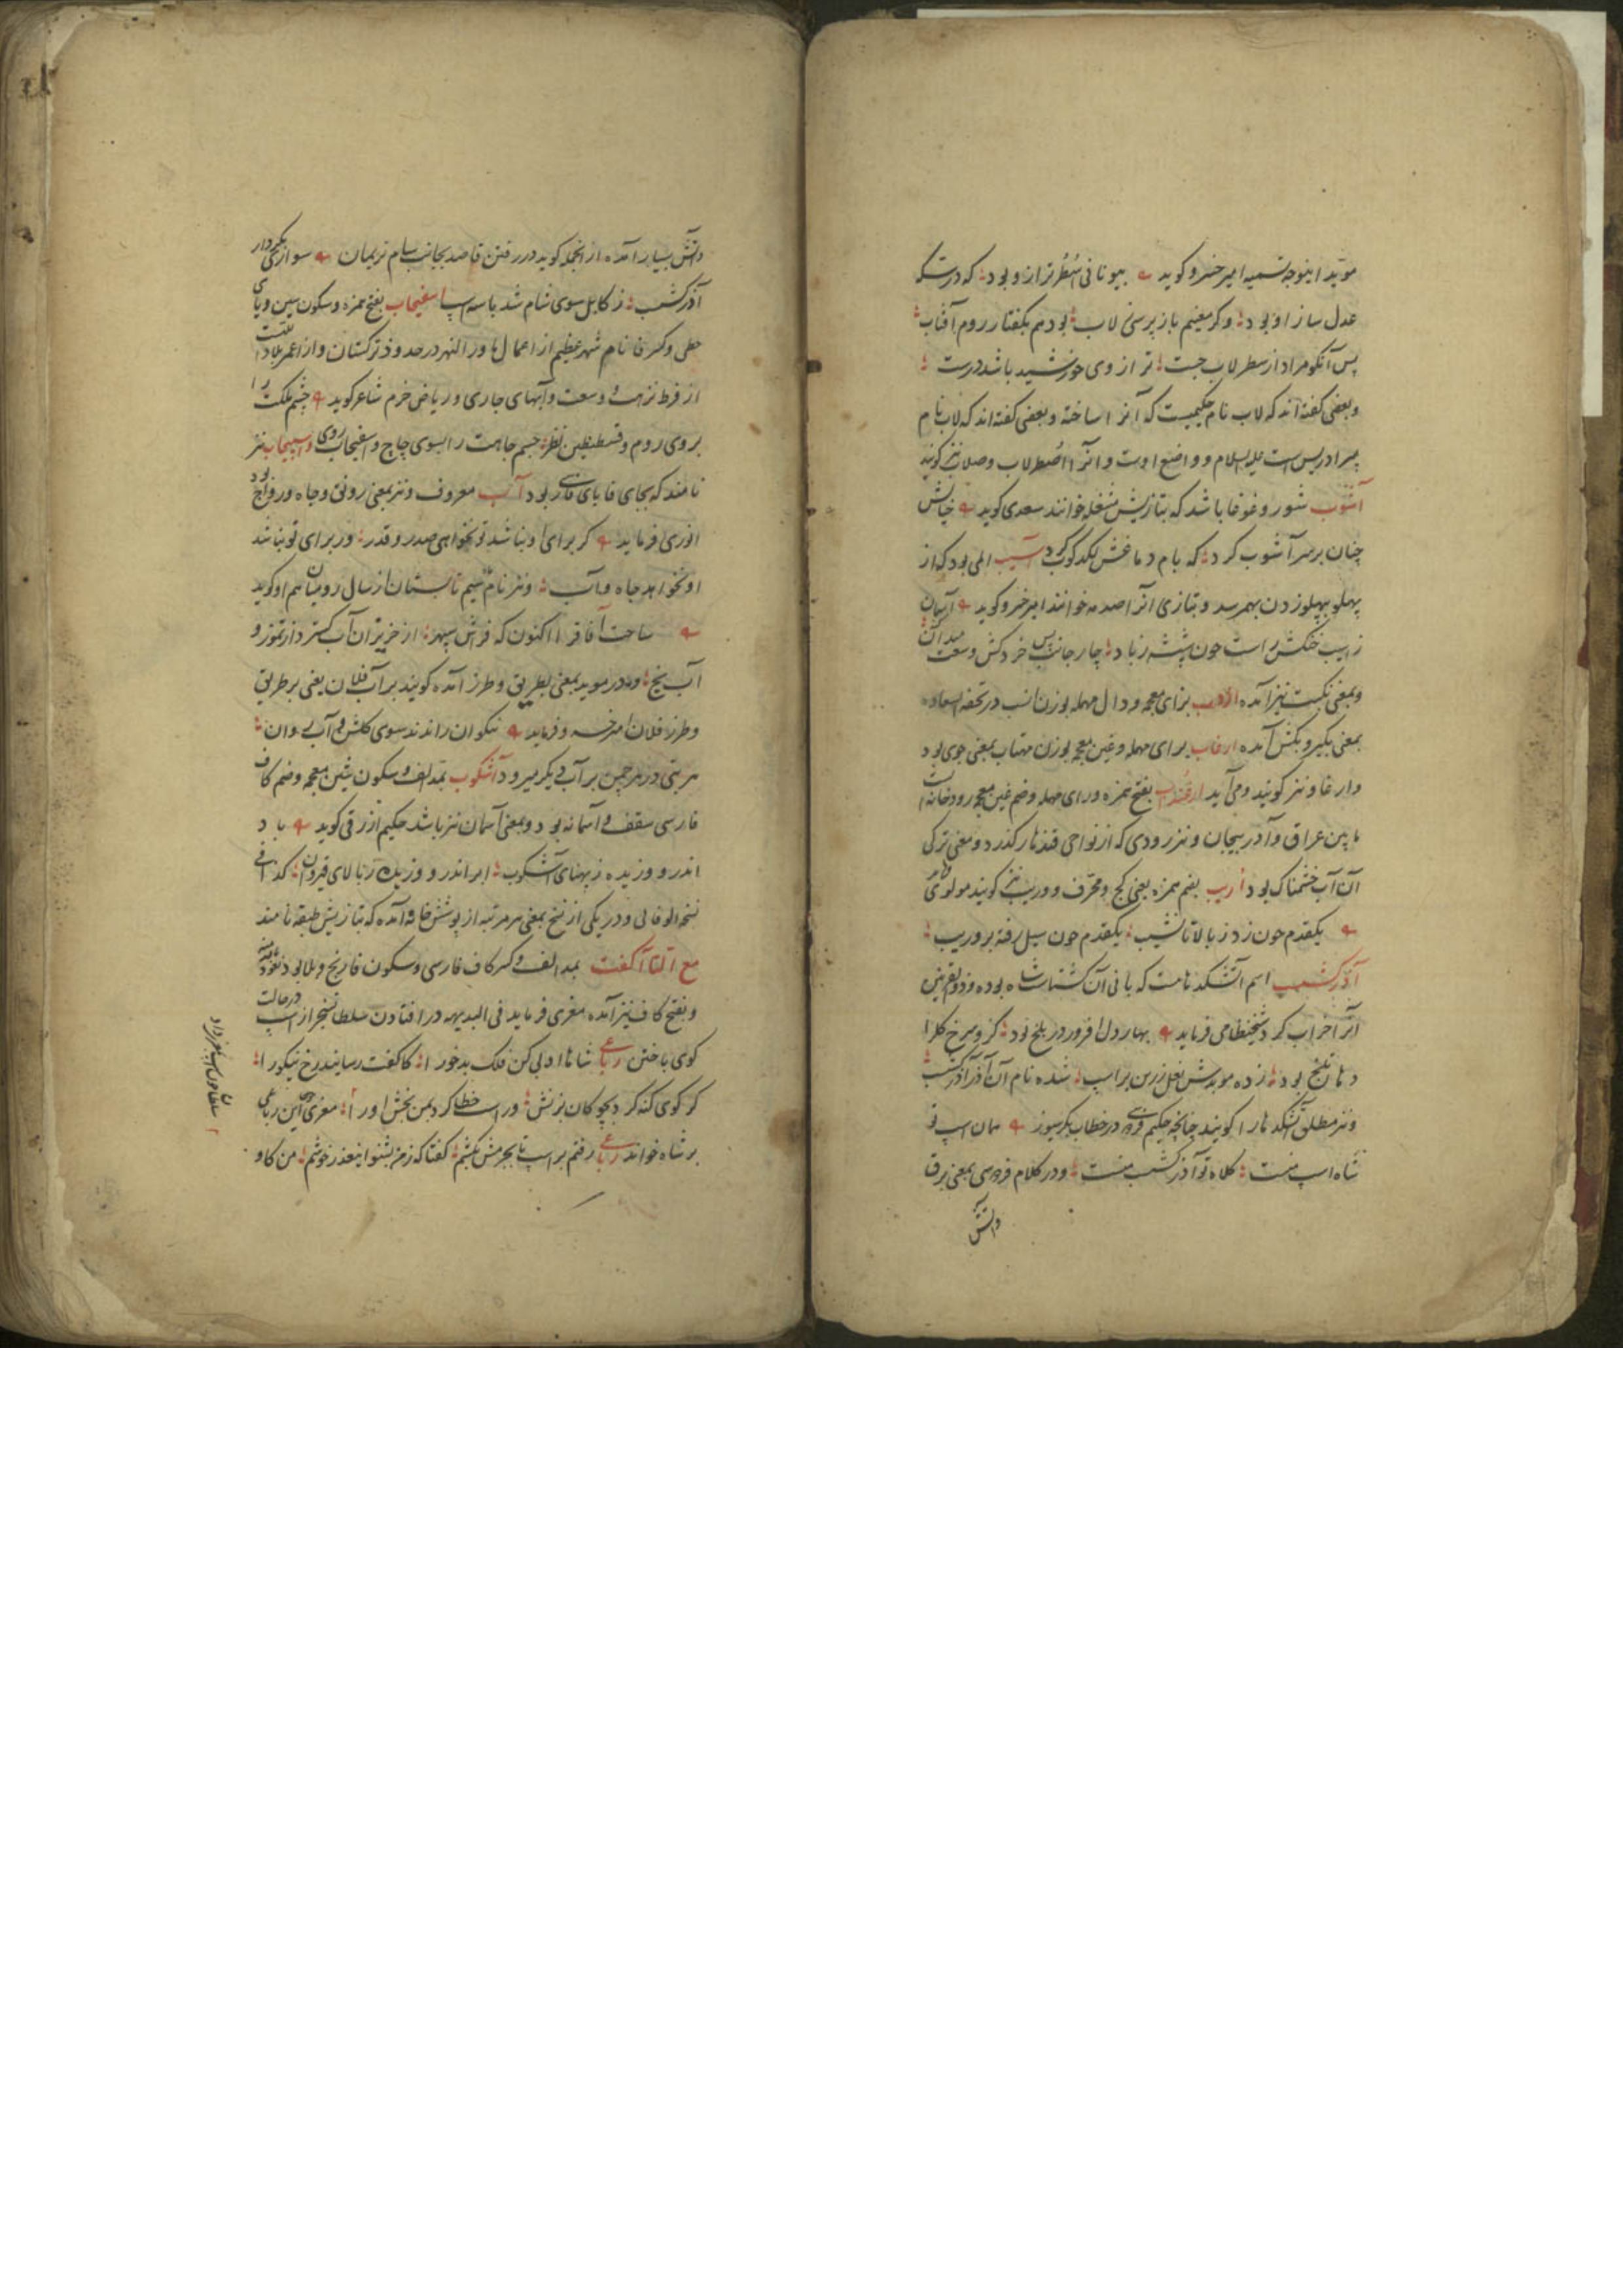 موید اینوجه تسمیه امیر خسرو کوید بیونانی سُطُر ترازو بود که درستکه
عدل ساز او بود وکر معنیم باز پرسی لاب بود هم بکفتار روم آفتاب
پس آنکو مراد از سطرلاب جست ترازوی خورشید باشد درست
وبعضی کفته اند که لاب نام حکیمیست که آنرا ساخته وبعضی کفته اند که لاب نام
پسر ادریس است علیه السلام و واضع اوست وانرا اُصطرلاب وصلاب نیز کویند
آشوب شور و غوغا باشد که بتازیش مشغله خوانند سعدی کوید خیالش
چنان بر سر آشوب کرد که بام دماغش لکدکوب کرد آسیب المی بود که از
پهلو بپهلو زدن بهمرسد وبتازی انرا صدمه خوانند امیر خسرو کوید
زاسیب
وبمعنی نکبت نیز آمده ازدب بزای معجمه ودال مهمله بوزن انسب در تحفة السعاده
بمعنی بکیر وبکش آمده ارغاب برای مهمله وغین معجمه بوزن مهتاب بمعنی جوی بود
وارغاو نیز کویند ومی آید ارغنداب بفتح همزه ورای مهمله وضم غین معجمه رودخانه است
مابین عراق وآذربیجان ونیز رودی که از نواحی قندهار کذرد ومعنی ترکی
آن آب خشمناک بود اُریب بضم همزه یعنی کج ومحرف ووریب نیز کویند مولوی
یکقدم چون زد ز بالا تا نشیب یکقدم چون سیل رفته بر وریب
آذرکشسب اسم آتشکده نامست که بانی آن کشتاسب شاه بوده وذوالقرنین
آنرا خراب کرد شیخ نظامی فرماید بهار دل افروز در بلخ بود کزو سرخ کل را
دهان تلخ بود زده موبدش نعل زرین بر اسب شده نام آن آذر آذرکشسب
ونیز مطلق آتشکدها را کویند چنانچه حکیم فردوسی در خطاب بکرسیوز همان اسب تو
شاه اسب منست کلاه تو آذرکشسب منست ودر کلام فردوسی بمعنی برق
وآتش
وآتش بسیار آمده از انجمله کوید در رفتن قاصد بجانب سام نریمان سواری بکردار
آذرکشسب ز کابل سوی شام شد با سه اسب اسفیجاب بفتح همزه وسکون سین ویای
حطی وکسر فا نام شهر عظیم از اعمال ماورالنهر در حدود ترکستان واز اعمر بلاد
از فرط نزهت وسعت وآبهای جاری وریاض خرم شاعر کوید چشم ملکت را
بروی روم وقسطنطین نظر جسم جاهت را بسوی چاچ واسفیجاب روی واسپیجاب نیز
نامند که بجای فا بای فارسی بود آب معروف ونیز بمعنی رونق وجاه ورواج بود
انوری فرماید کر برای او نباشد تو نخواهی صدر وقدر ور برای تو نباشد
او نخواهد جاه وآب ونیز نام
ساحت آفاق را اکنون که فراش سپهر از حزیران آب کسترد از تموز و
آب نخ ودر موید بمعنی بطریق وطرز آمده کویند بر آب فلان یعنی بر طریق
وطرز فلان
هر بتی در هر چمن بر آب دیکر میرود آشکوب بمد الف وسکون شین معجمه وضم کاف
فارسی سقف وآسمانه بود وبمعنی آسمان نیز باشد حکیم ازرقی کوید باد
اندر و وزیده ز پهنای آشکوب ابر اندر و
نسخه الوفائی ودر یکی از نسخ بمعنی هر مرتبه از پوشش خانه آمده که بتازیش طبقه نامند
مع التا آکفت بمد الف وکسر کاف فارسی وسکون فا رنج وبلا بود
وبفتح کاف نیز آمده معزی فرماید فی البدیهه در افتادن سلطان سنجر از اسب در حالت
کوی باختن رباعی شاها ادبی کن فلک بدخو را کاکفت رسانید رخ نیکو را
کر کوی کنه کرد بچوکان بزنش ور اسب خطا کرد بمن بخش او را معزی این رباعی
بر شاه خواند رباعی رفتم بر اسب تا بجرمش بکشم کفتا که ز من بشنو این عذر خوشم من کاو